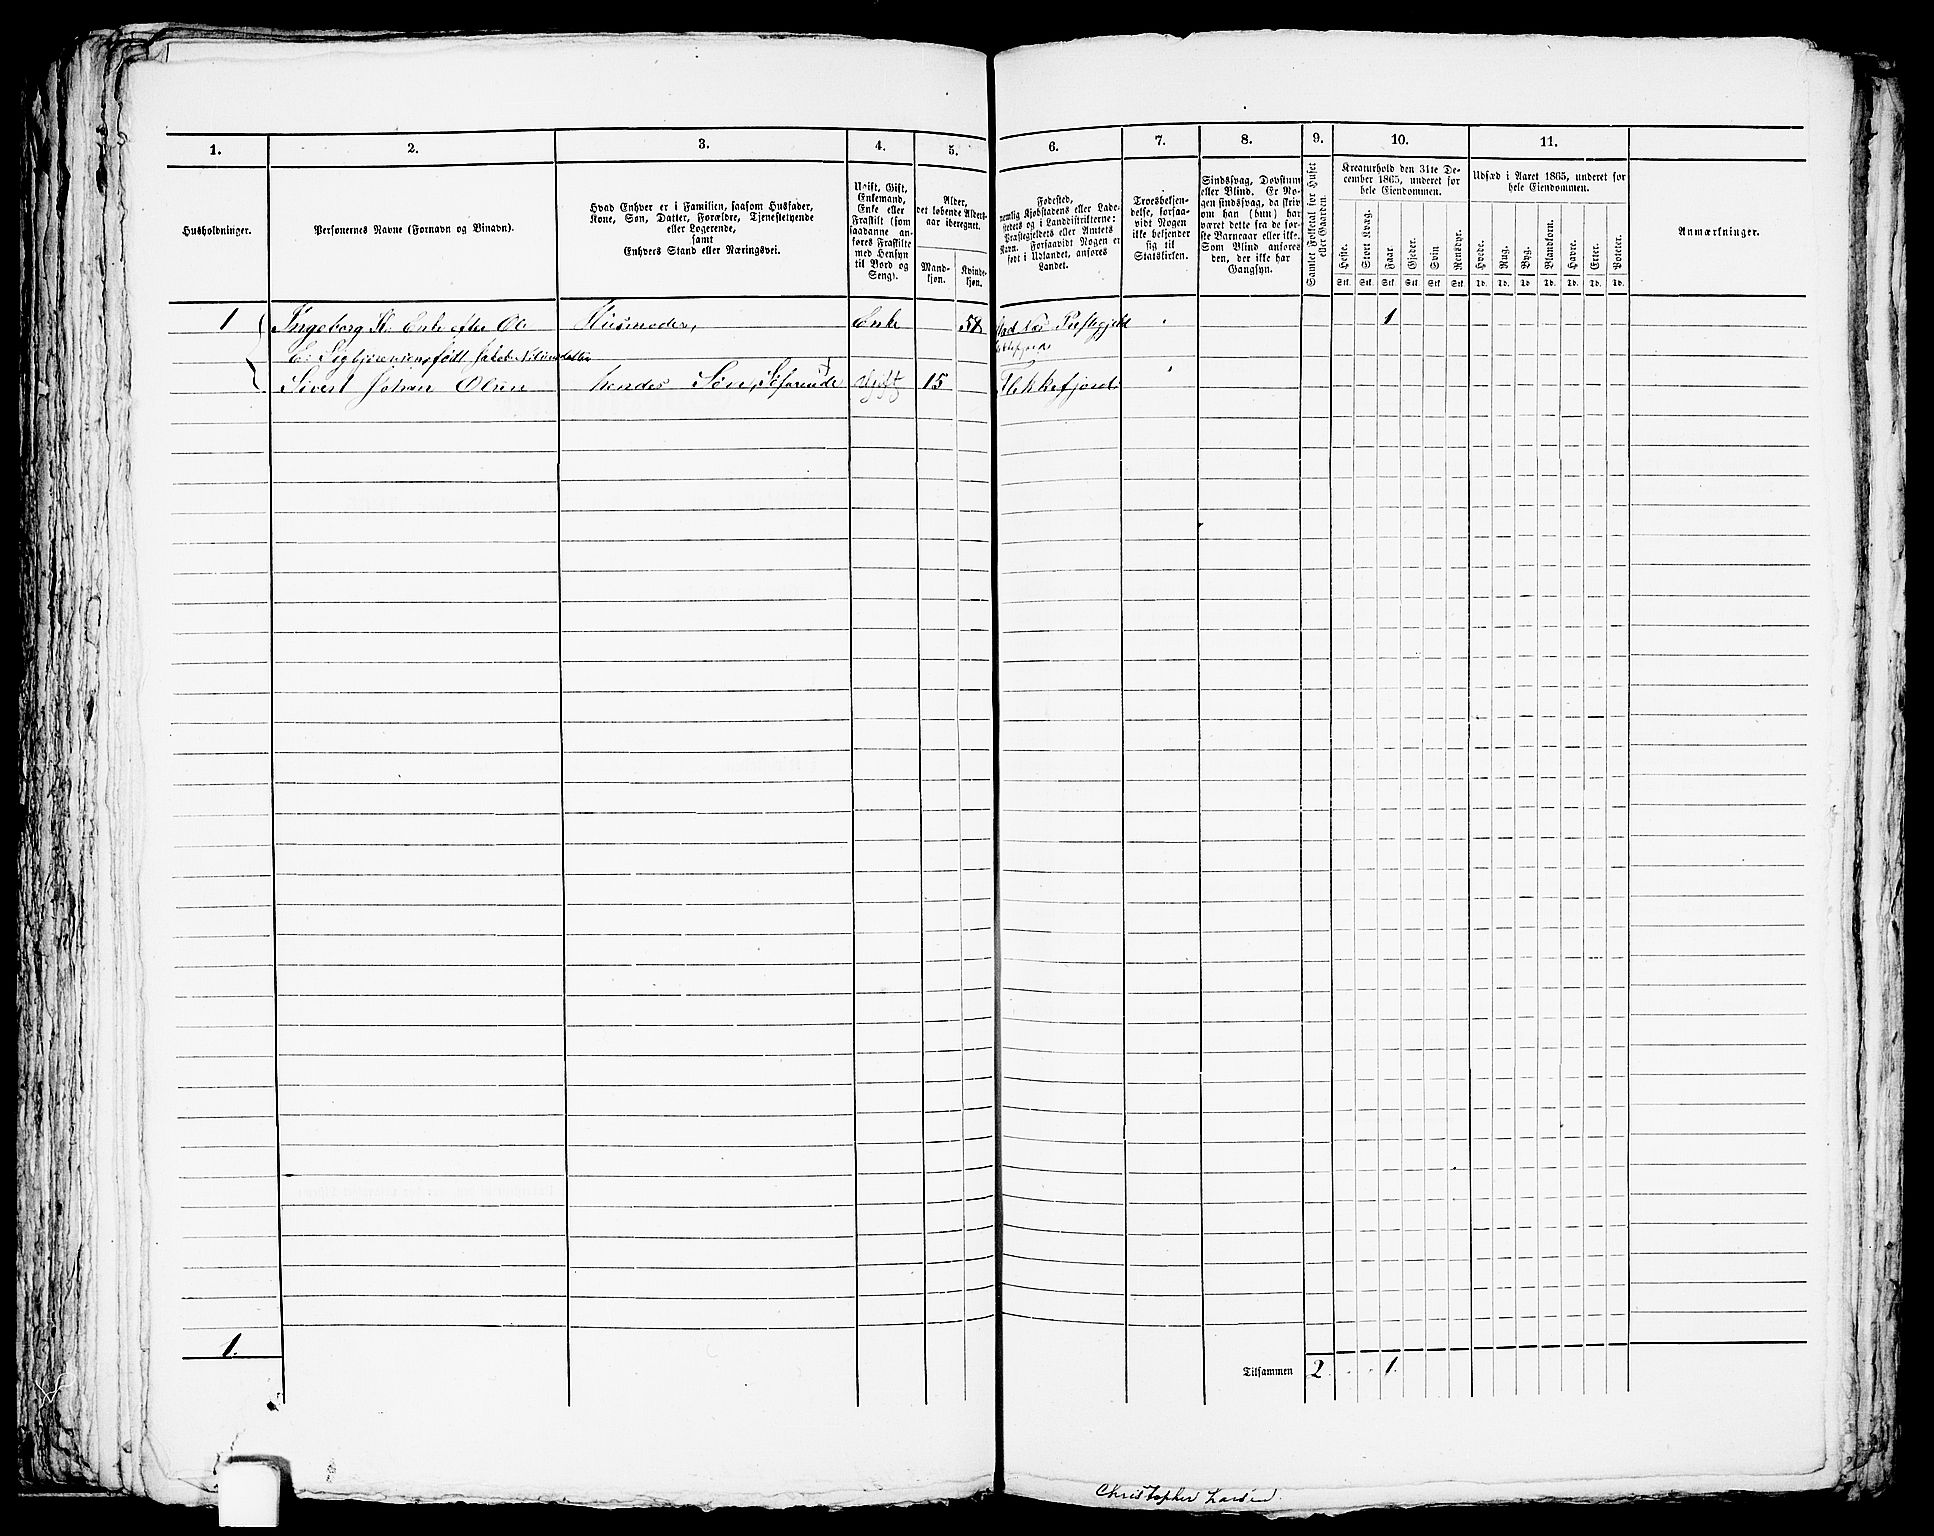 1. 2. 3. 4. 5. 6. 7. 8. 9. 10. 11.
Husholdninger.
Personernes Navne (Fornavn og Tilnavn).
Hvad Enhver er i Familien, saasom Husfader,
Kone, Søn, Datter, Forældre, Tjenestetyende
eller Logerende,
samt
Enhvers Stand eller Næringsvei.
Ugift, Gift,
Enkemand,
Enke eller
Fraskilt (som
saadanne an-
føres Fraskilte
med Hensyn
til Bord og
Seng).
Alder,
det løbende Alders-
aar iberegnet.
Mand-
kjøn.
Kvinde-
kjøn.
Fødested,
nemlig Kjøbstadens eller Lade-
stedets og i Landdistrikterne:
Præstegjeldets eller Amtets
Navn. Forsaavidt Nogen er
født i Udlandet, anføres
Landet.
Troesbekjen-
delse, forsaa-
vidt Nogen
ikke bekjender
sig til
Statskirken.
Sindssvag, Døvstum
eller Blind. Er No-
gen sindssvag, da skriv
om han (hun) har
været dette fra de før-
ste Barneaar eller ikke.
Som Blind anføres
den, der ikke har
Gangsyn.
Samlet Folketal for Huset
eller Gaarden.
Kreaturhold den 31te De-
cember 1865, underet for
hele Eiendommen.
Heste. Stort Kvæg. Faar. Gjeder. Svin Rensdyr.
Stk. Stk. Stk. Stk. Stk. Stk.
Udsæd i Aaret 1865, underet for
hele Eiendommen.
Hvede. Rug. Byg. Blandkorn. Havre. Erter. Poteter.
Td. Td. Td. Td. Td. Td. Td.
Anmærkninger.
1 Ingeborg K. Enke efter Ole Husmoder, Enke 58 Præstegjeld 1
E. født
Sivert Johan Olsen hendes Søn, Søfarende Ugift 15 Flekkefjord
1. Tilsammen 2 1
Christopher Larsen